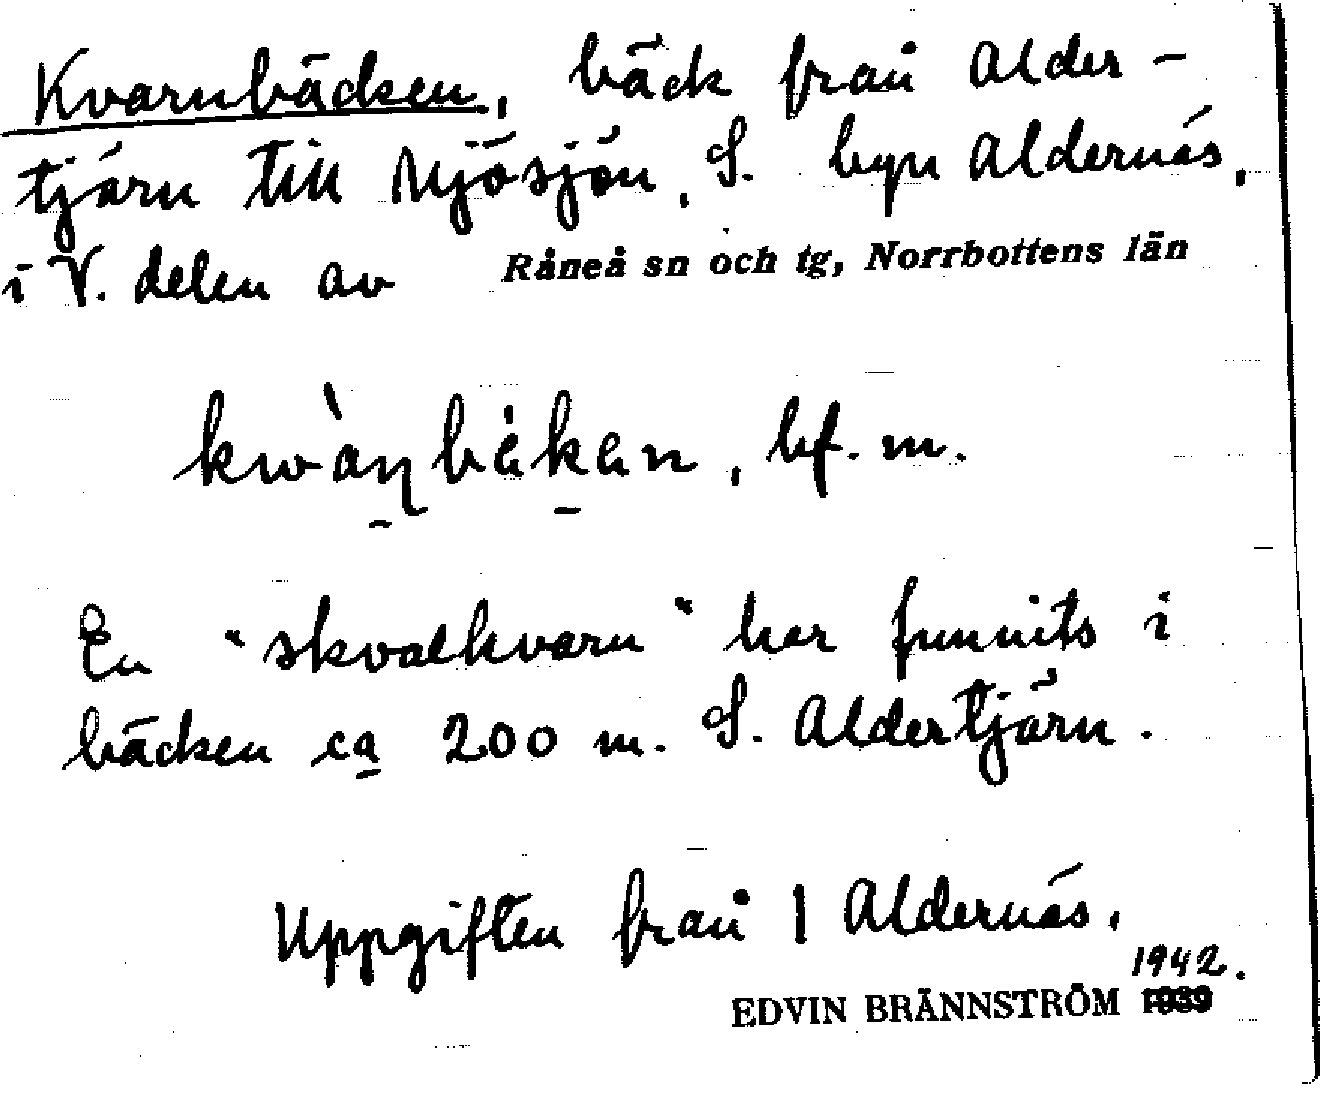 Kvarnbäcken, bäck från Alder-
tjärn till Mjösjön, S. byn Aldernäs,
i V. delen av Råneå sn och tg, Norrbottens län
kwàṇbákan, bf. m.
En "skvalkvarn" har funnits i
bäcken ca 200 m. S. Aldertjärn.
Uppgiften från 1 Aldernäs.
1942.
EDVIN BRÄNNSTRÖM 1939